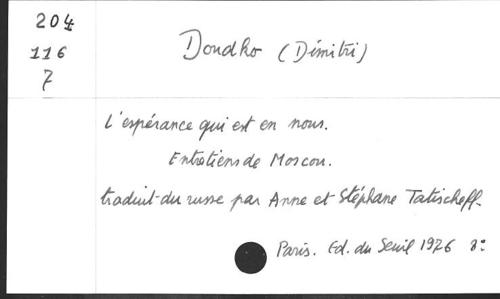 204
116
7
Doudko (Dimitri)
L'espérance qui est en nous.
Entretiens de Moscou.
traduit du russe par Anne et Stéphane Tatischeff.
Paris. Ed. du Seuil 1976 8°